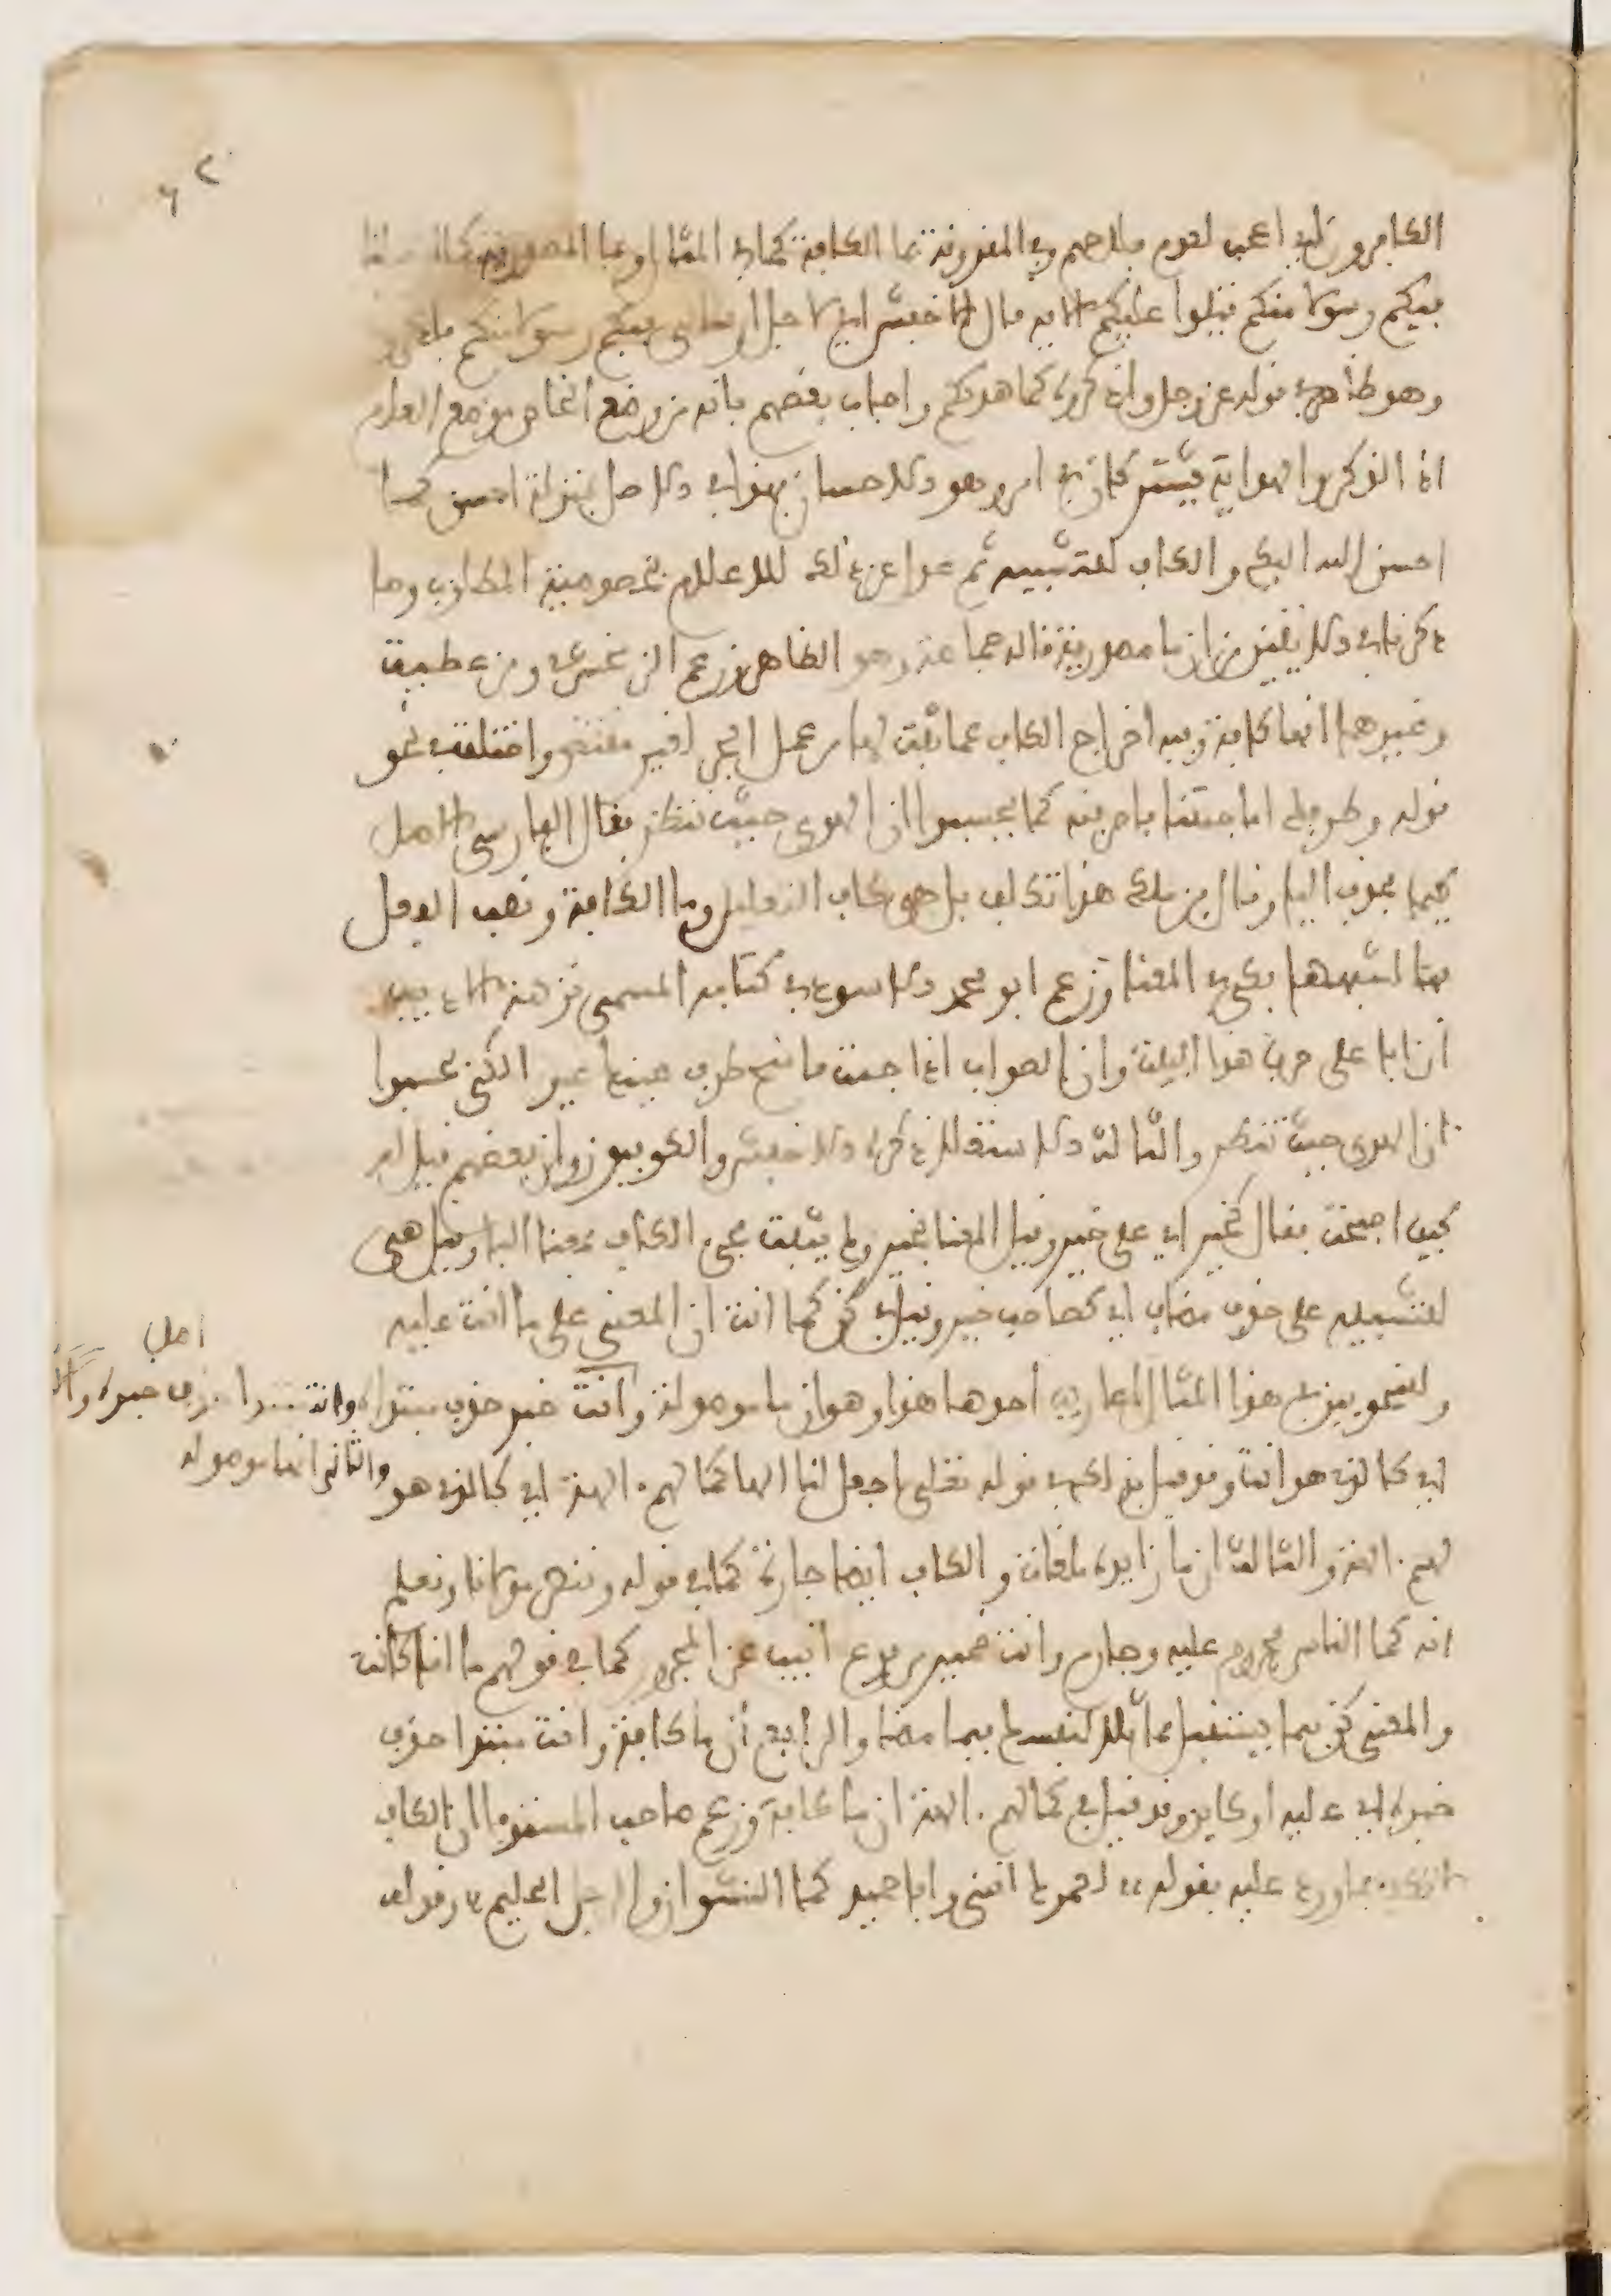 ٦٢
الكافرون اي اعجب لعدم فلاحهم وفي المقرونة بما الكافة كما في المثال وبما المصدرية كما ارسلنا
فيكم رسولا منكم يتلوا عليكم الاية قال الاخفش اي لاجل ارسالي فيكم رسولا منكم فاذكروني
وهو ظاهر في قوله عز وجل واذكروه كما هداكم واجاب بعضهم بانه من وضع الخاص موضع العام
اذ الذكر والهداية يشتركان في امر وهو الاحسان فهذا في الاصل بمنزلة احسن كما
احسن الله اليك والكاف للتشبيه ثم عدل عن ذلك للاعلام بخصوصية المطلوب وما
ذكرناه في الايتين من ان ما مصدرية قاله جماعة وهو الظاهر وزعم الزمخشري وبن عطية
وغيرهما انها كافة وفيه اخراج الكاف عما ثبت لها من عمل الجر لغير مقتض واختلف في نحو
قوله وطرفك اما جئتنا فاصرفنه كما يحسبوا ان الهوى حيث تنظر فقال الفارسي الاصل
كيما فحذف اليا وقال بن ملك هذا تكلف بل هي كاف التعليل وما الكافة ونصب الفعل
بها لشبهها بكي في المعنا وزعم ابو محمد الاسود في كتابه المسمى نزهة الاديب
ان ابا علي حرف هذا البيت وان الصواب اذا جئت فامنح طرف عينيك غيرنا لكي يحسبوا
ان الهوى حيث تنظر والثالث الاستعلا ذكره الاخفش والكوفيون وان بعضهم قيل له
كيف اصبحت فقال كخير اي على خير وقيل المعنا بخير ولم يثبت مجي الكاف بمعنا البا وقيل هي
للتشبيه على حذف مضاف اي كصاحب خير وقيل في كن كما انت ان المعنى على ما انت عليه
وللنحويين في هذا المثال اعاريب احدها هذا وهو ان ما موصولة وانت مبتدا حذف خبره
والثاني انها موصولة وانت خبر حذف مبتداه
اي كالذي هو انت وقد قيل بذلك في قوله تعلى اجعل لنا الها كما لهم ءالهة اي كالذي هو
لهم ءالهة والثالث ان ما زايدة ملغاة والكاف ايضا جارة كما في قوله وننصر مولانا ونعلم
انه كما الناس مجروم عليه وجارم وانت ضمير مرفوع انيب عن المجرور كما في قولهم ما انا كانت
والمعنى كن فيما يستقبل مماثلا لنفسك فيما مضا والرابع ان ما كافة وانت مبتدا حذف
خبره اي عليه او كاين وقد قيل في كما لهم ءالهة ان ما كافة وزعم صاحب المستوفا ان الكاف
عليه بقوله لعمرك انني وابا حميد كما النشوان والرجل الحليم وقوله